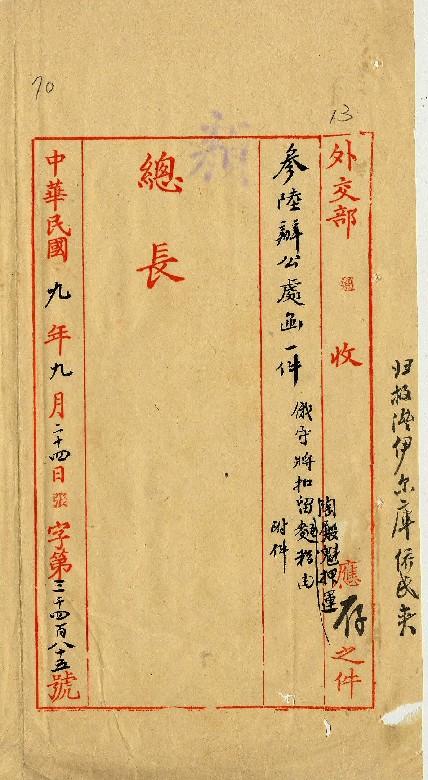 13
70
归救济伊尔库侨民案
外交部 收 應存之件
參陸辦公處函一件 俄守將扣留
陶殿魁押運
附件
總長
中華民國九年九月二十四日張字第三千四百八十五號